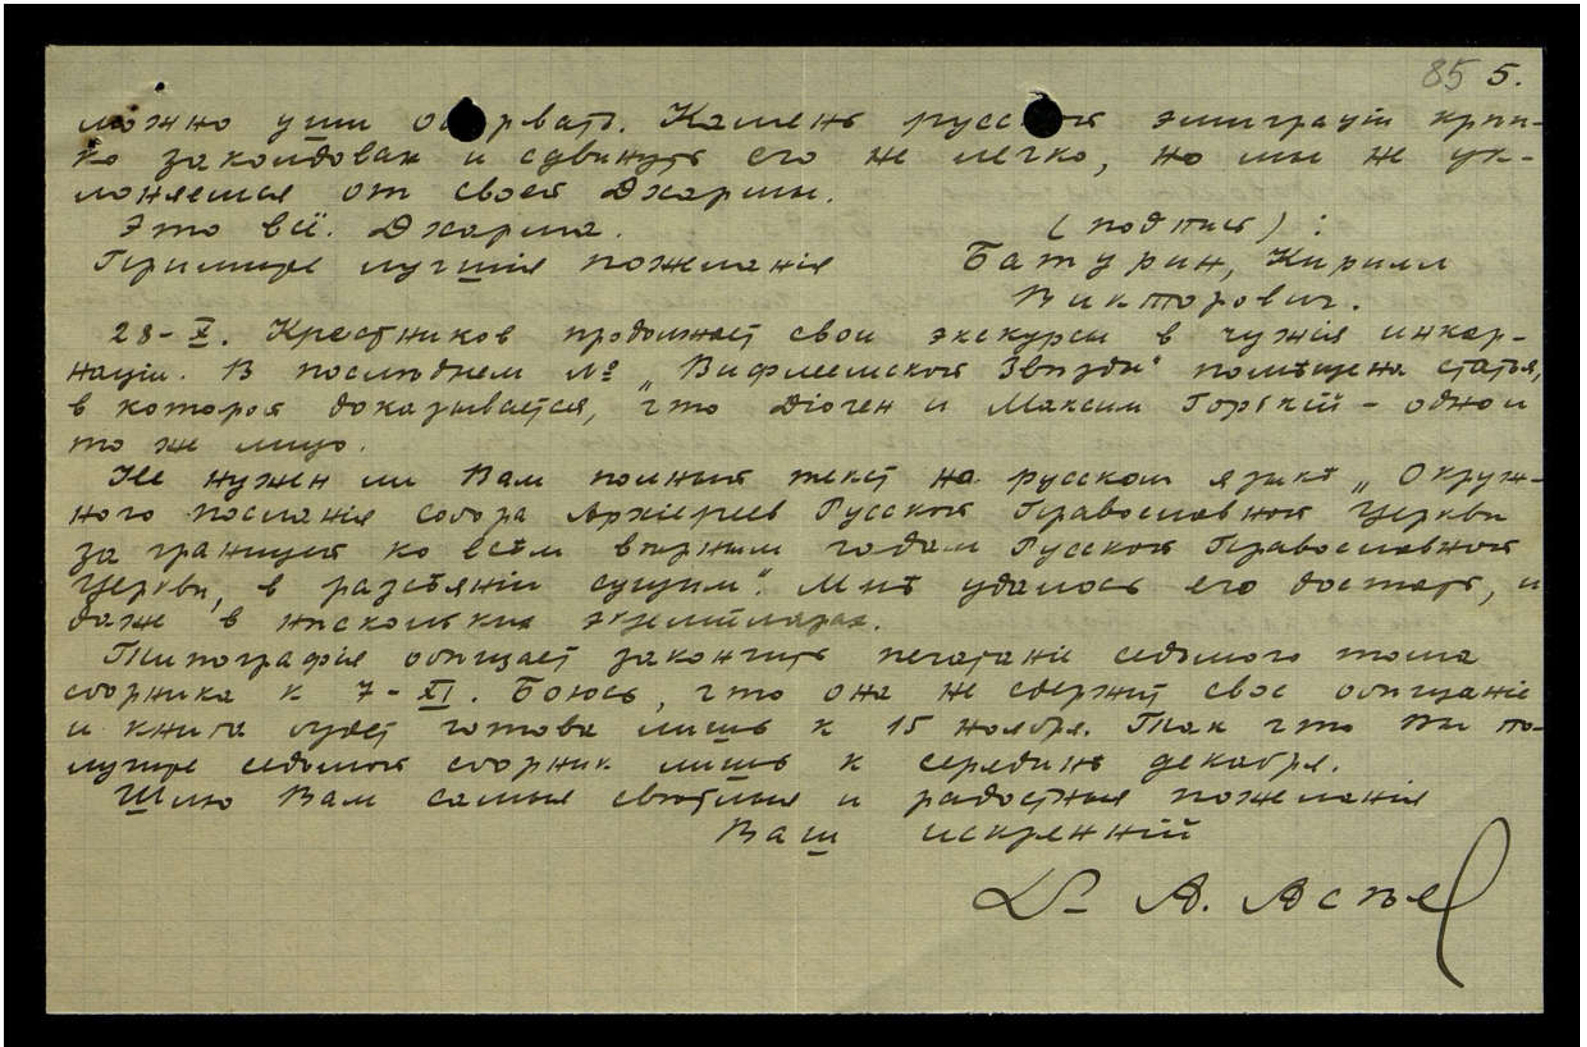 85 5.
можно уши оборвать. Камень русской эмиграціи крѣп-
ко заколдован и сдвинуть его не легко, но мы не ук-
лоняемся от своей Дхармы.
Это всё. Дхарма. (подпись):
Примите лучшія пожеланія Батурин, Кирилл
Викторович.
28-X. Крестников продолжает свои экскурсы в чужія инкар-
націи. В послѣднем № „Вифлеемской Звѣзды" помѣщена статья,
в которой доказывается, что Діоген и Максим Горькій - одно и
то же лицо.
Не нужен ли Вам полный текст на русском языкѣ „Окруж-
ного посланія собора Архіереев Русской Православной Церкви
за границей ко всѣм вѣрным чадам Русской Православной
Церкви, в разсѣяніи сущим". Мнѣ удалось его достать, и
даже в нѣскольких экземплярах.
Типографія обѣщает закончить печатаніе седьмого тома
сборника к 7-XI. Боюсь, что она не сдержит свое обѣщаніе
и книга будет готова лишь к 15 ноября. Так что Вы по-
лучите седьмой сборник лишь к серединѣ декабря.
Шлю Вам самыя свѣтлыя и радостныя пожеланія
Ваш искренній
Dr А. Асѣев